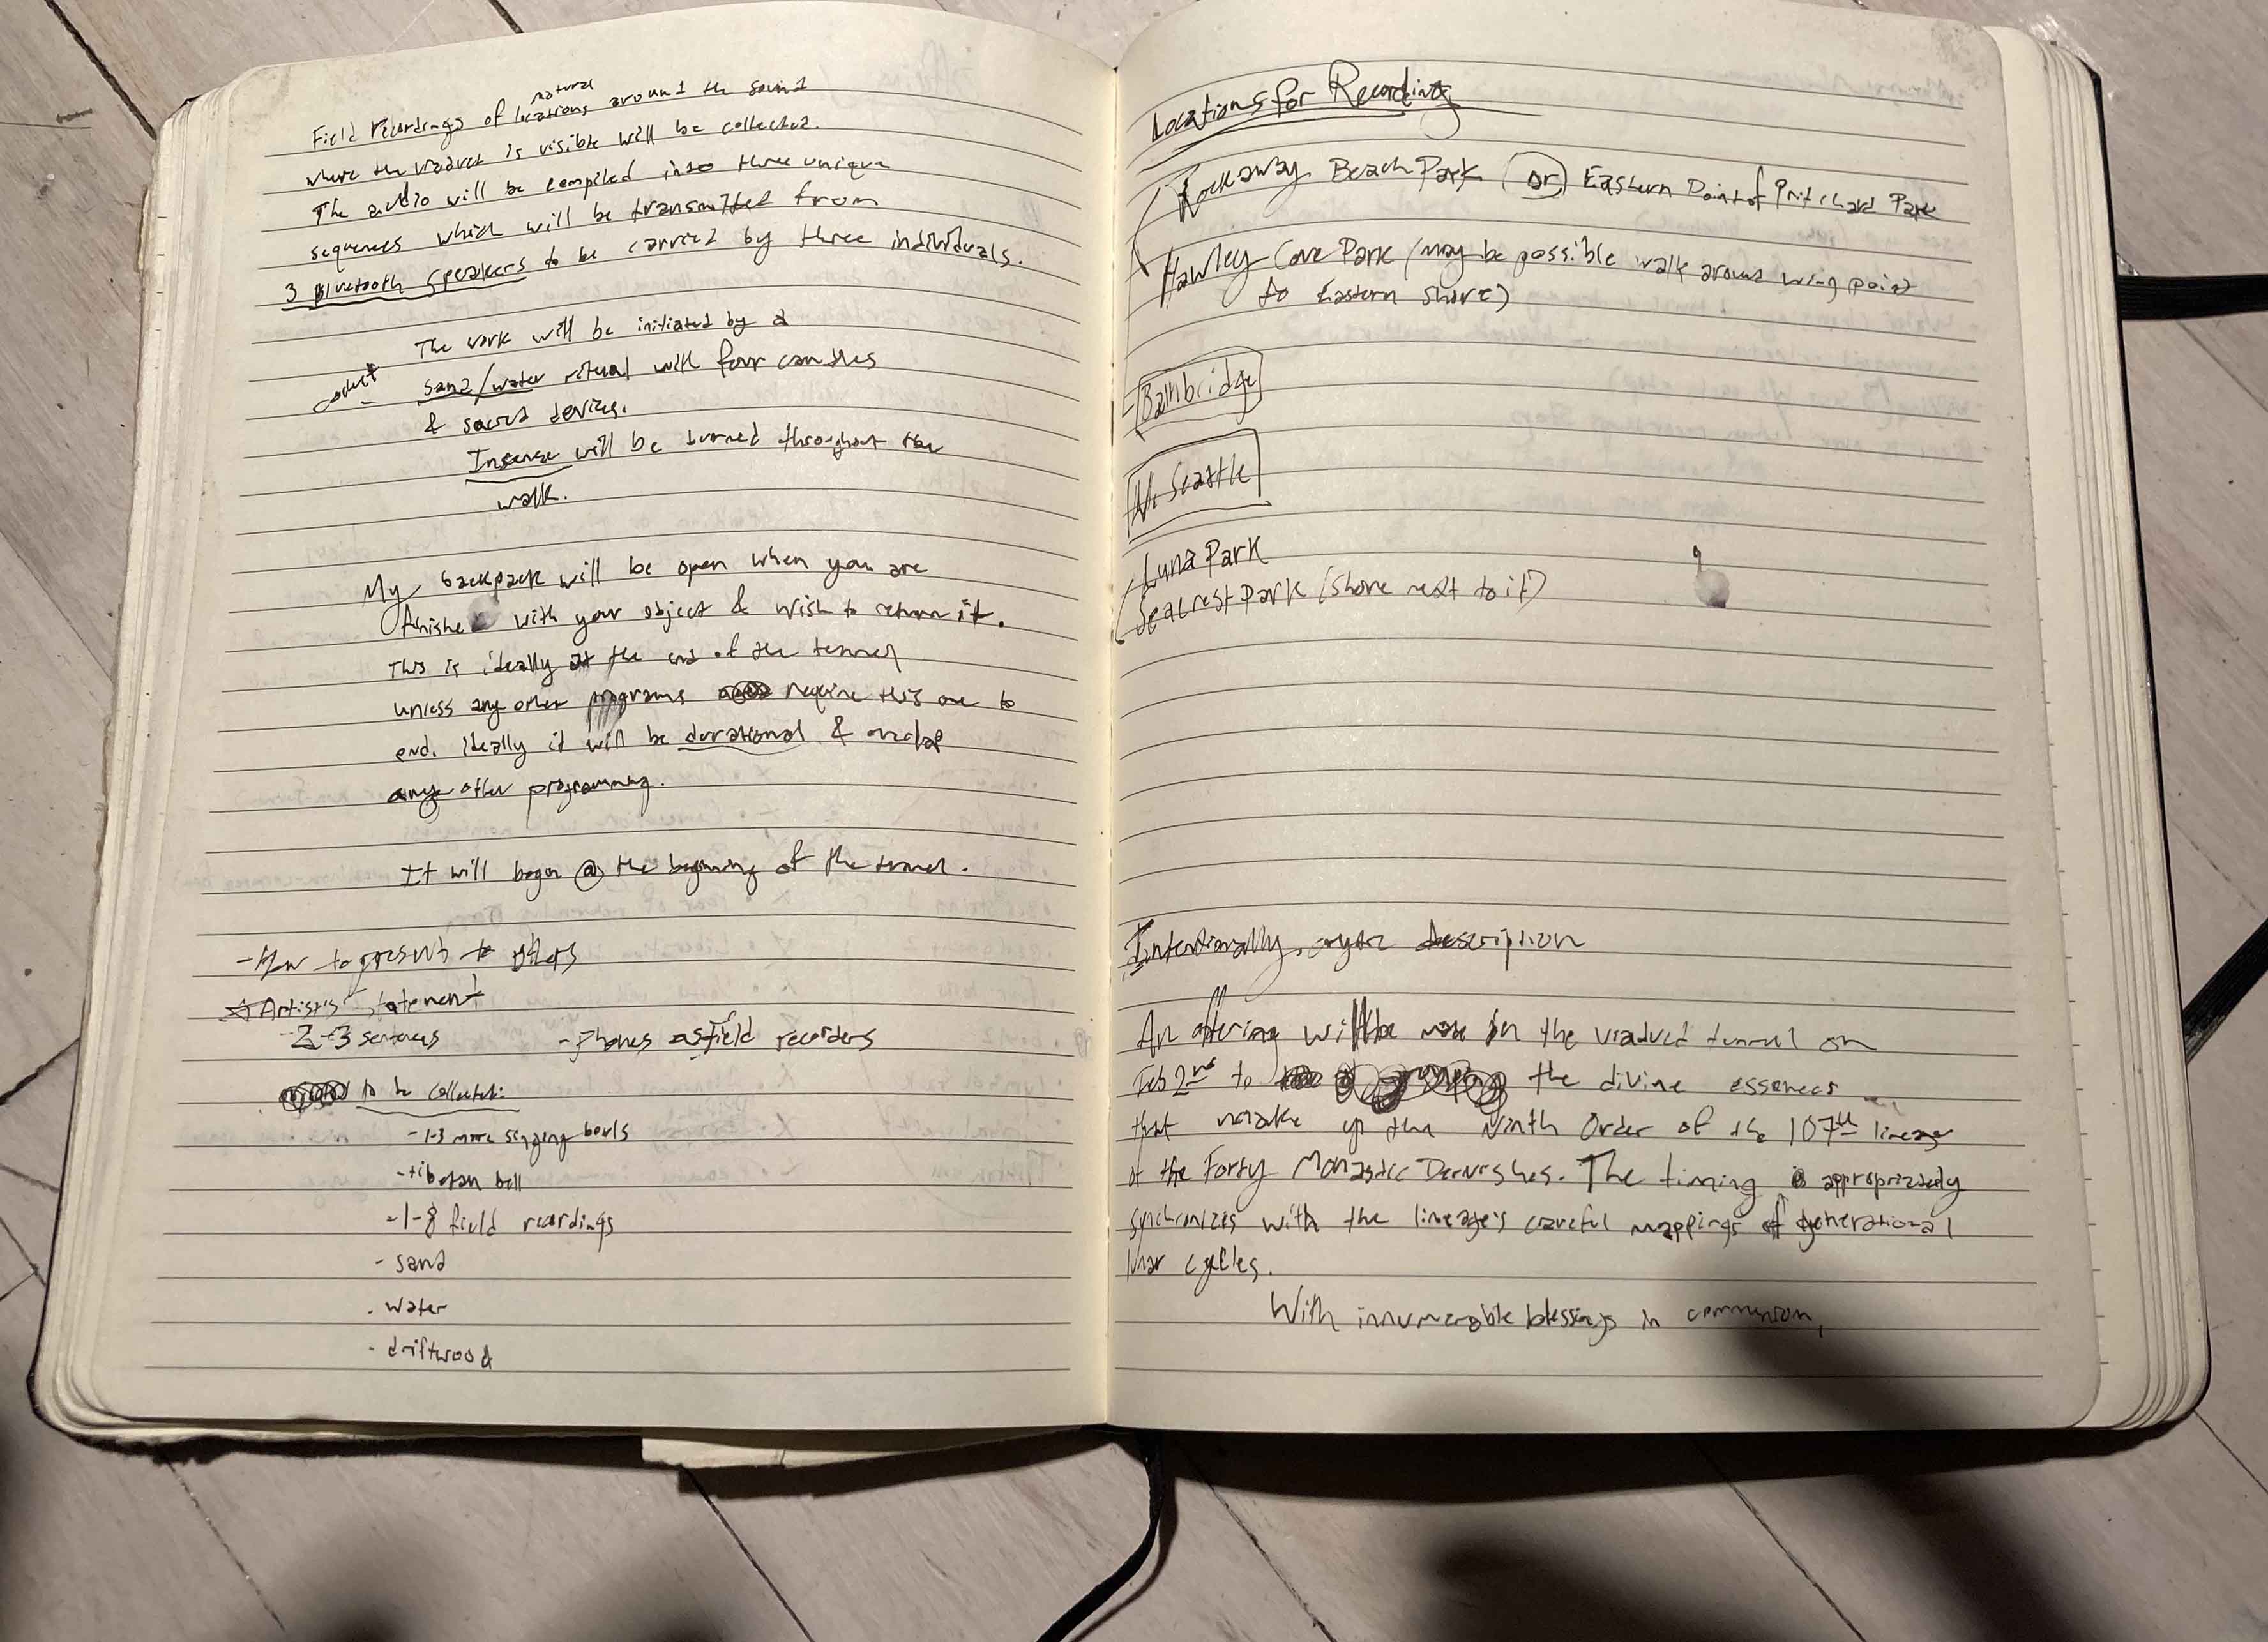 Field recordings of natural locations around the sound
where the viaduct is visible will be collected.
The audio will be compiled into three unique
sequences which will be transmitted from
3 bluetooth speakers to be carried by three individuals.
The work will be initiated by a
sand/water ritual with four candles
& sacred devices.
Insense will be burned throughout the
walk.
My backpack will be open when you are
finished with your object & wish to return it.
This is ideally at the end of the tunnel
unless any other programs require this one to
end. ideally it will be durational & overlap
any other programming.
It will begin @ the beginning of the tunnel.
- How to present to others
☆ Artists Statement
- 2-3 sentences - Phones as field recorders
to be collected:
- 1-3 more singing bowls
- tibetan bell
- 1-8 field recordings
- sand
- water
- driftwood
Locations for Recording
Rockaway Beach Park (or) Eastern Point of Pritchard Park
Hawley Cove Park (may be possible walk around wing point
to Eastern Shore)
Bainbridge
W. Seattle
Luna Park
Seacrest Park (shore next to it)
Intentionally description
An offering will be made in the viaduct tunnel on
Feb 2nd to the divine essences
that make up the Ninth Order of the 107th lineage
of the Forty Monastic Dervishes. The timing appropriately
synchronizes with the lineage's careful mappings of generational
lunar cycles.
With innumerable blessings in communion,